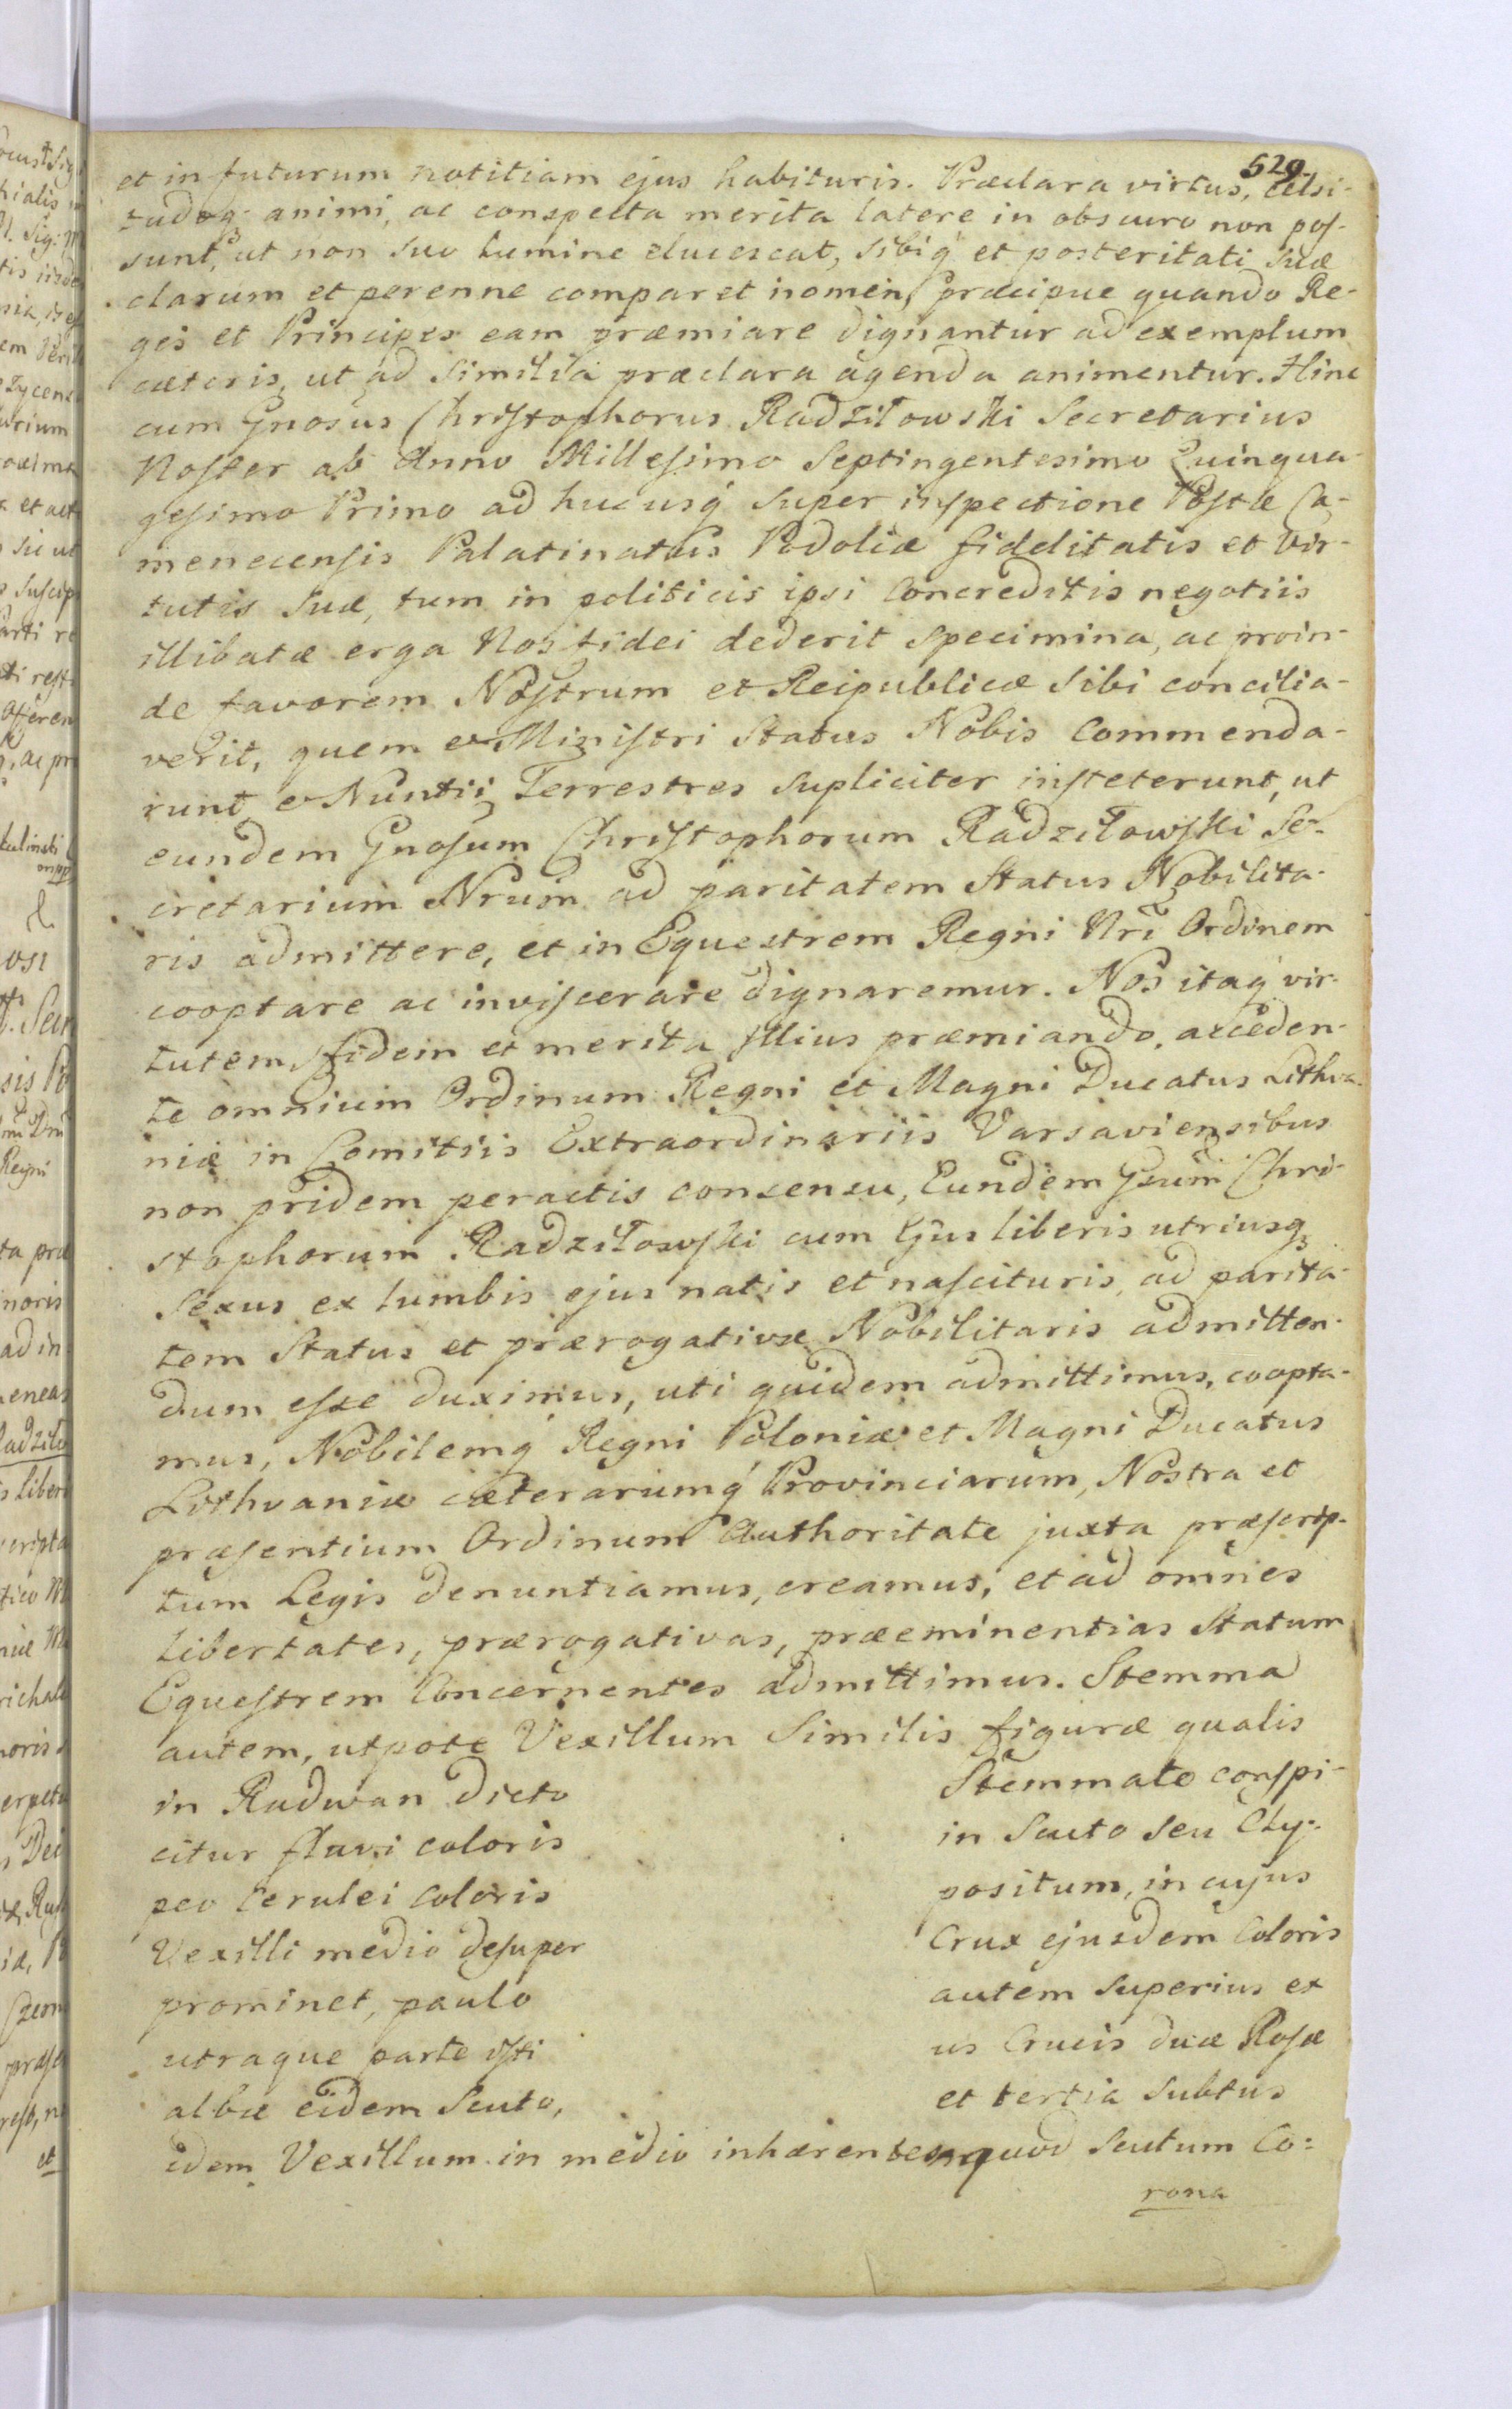 529.
et in futurum notitiam ejus habituris. Præclara virtus, Celsi-
tudoq; animi, ac conspecta merita latere in obscuro non pos-
sunt, ut non suo lumine elucescat, sibiq́ et posteritati suæ
clarum et perenne comparet nomen, præcipue quando Re-
ges et Principes eam præmiare dignantur ad exemplum
cæteris, ut ad similia præclara agenda animentur. Hinc
cum Gnosus Christophorus Radziłowski Secretarius
Noster ab Anno Millesimo Septingentesimo Quinqua-
gesimo Primo ad hucusq́ super inspectione Postæ Ca-
menecensis Palatinatus Podoliæ fidelitatis et Vir-
tutis suæ, tum in politicis ipsi concreditis negotiis
illibatæ erga Nos fidei dederit specimina, ac proin-
de favorem Nostrum et Reipublicæ sibi concilia-
verit, quem et Ministri Status Nobis commenda-
runt et Nuntii Terrestres supliciter insteterunt, ut
eundem Gnosum Christophorum Radziłowski Se-
cretarium Nrum ad paritatem Status Nobilita-
ris admittere, et in Equestrem Regni Nri Ordinem
cooptare ac inviscerare dignaremur. Nos itaq́ vir-
tutem, fidem et merita illius præmiando, acceden-
te omnium Ordinum Regni et Magni Ducatus Lithva-
niæ in Comitiis Extraordinariis Varsaviensibus
non pridem peractis consensu, Eundem Gsum Chri-
stophorum Radziłowski cum Ejus liberis utriusq;
Sexus ex lumbis ejus natis et nascituris, ad parita-
tem Status et prærogativæ Nobilitaris admitten-
dum esse duximus, uti quidem admittimus, coopta-
mus, Nobilemq́ Regni Poloniæ et Magni Ducatus
Lithvaniæ cæterarumq́ Provinciarum, Nostra et
præsentium Ordinum Authoritate juxta præscrip-
tum Legis denuntiamus, creamus, et ad omnes
libertates, prærogativas, præeminentias Statum
Equestrem concernentes admittimus. Stemma
autem, utpote Vexillum similis figuræ qualis
in Radwan dicto Stemmate conspi-
citur flavi coloris in Scuto seu Cly-
peo cerulei coloris positum, in cujus
Vexilli medio desuper Crux ejusdem Coloris
prominet, paulo autem superius ex
utraque parte isti us Crucis duæ Rosæ
albæ eidem Scuto, et tertia subtus
idem Vexillum in medio inhærentes, quod Scutum Co-
rona